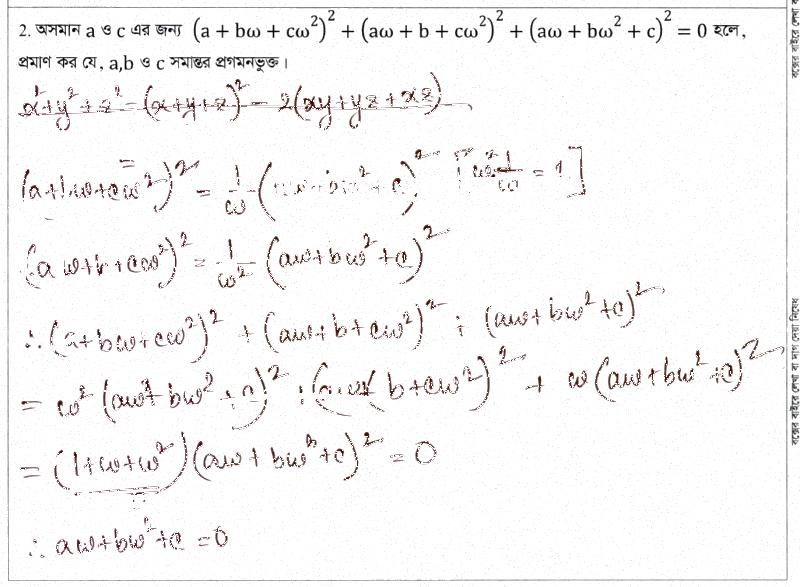 2. অসমান a ও c এর জন্য (a + bω + cω²)² + (aω + b + cω²)² + (aω + bω² + c)² = 0 হলে,
প্রমাণ কর যে, a,b ও c সমান্তর প্রগমনভুক্ত।
x²+y²+z² = (x+y+z)² - 2(xy+yz+xz)
(a+bω+cω²)² = 1/ω (aω+bω²+c)²
(aω+b+cω²)² = 1/ω² (aω+bω²+c)²
∴ (a+bω+cω²)² + (aω+b+cω²)² + (aω+bω²+c)²
= ω² (aω+bω²+c)² + ( b+cω²)² + ω (aω+bω²+c)²
= (1+ω+ω²)(aω+bω²+c)² = 0
∴ aω+bω²+c = 0
বক্সের বাইরে লেখা বা দাগ দেয়া নিষেধ